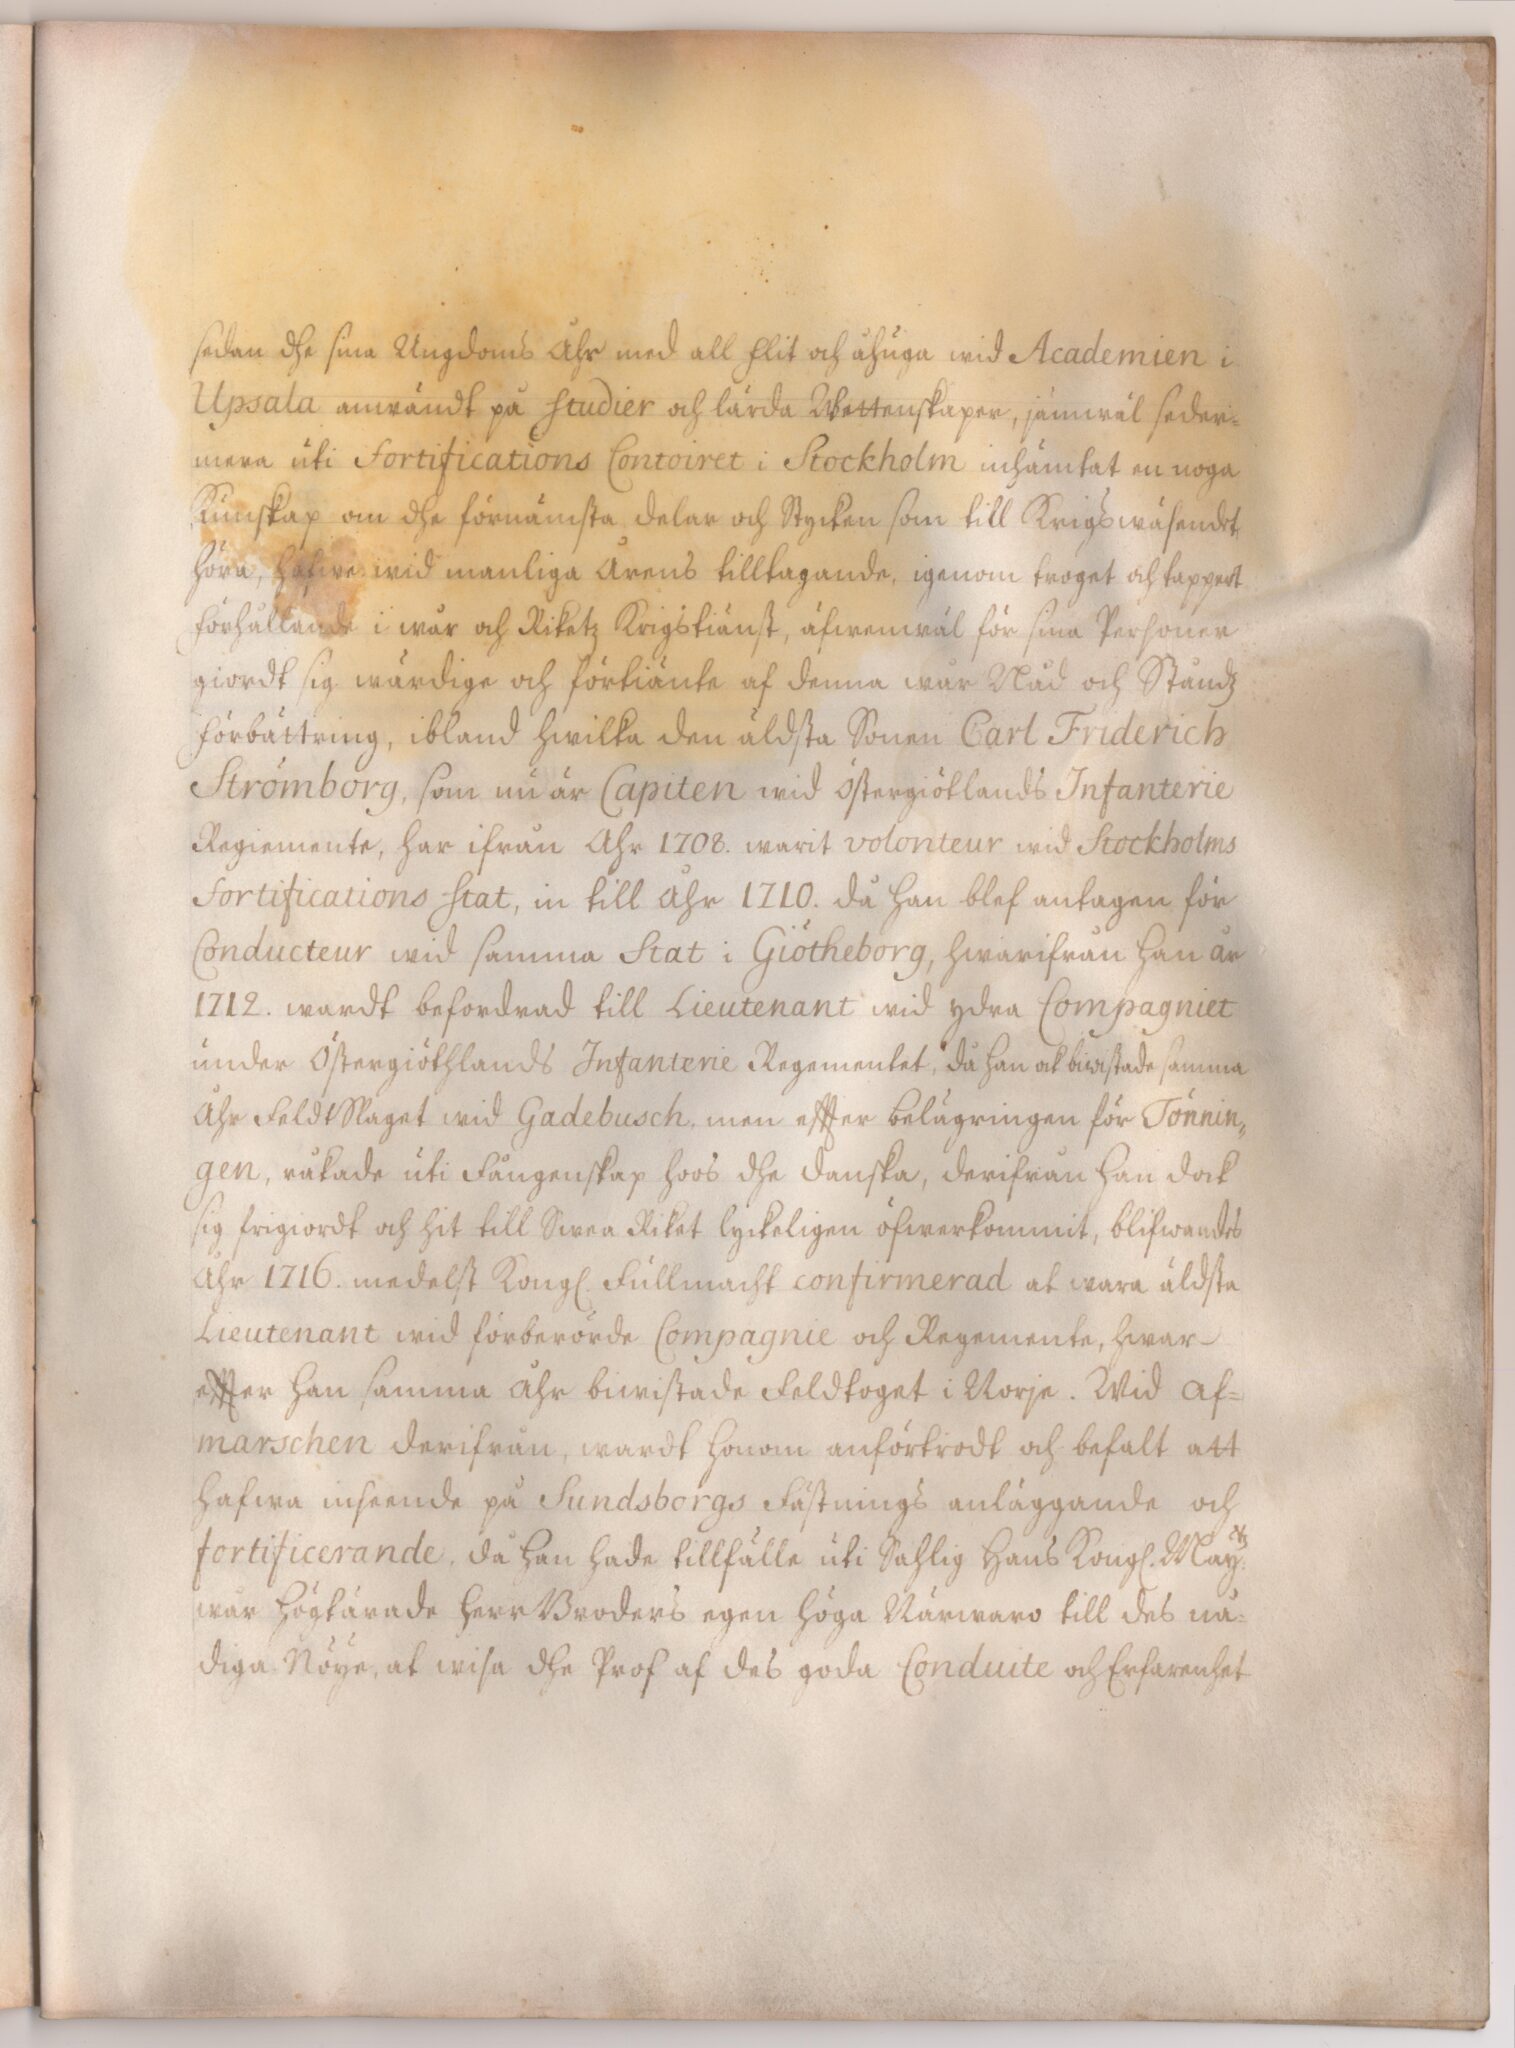 sedan dhe sina Ungdoms Åhr med all flit och åhuga wid Academien i
Upsala anwändt på studier och lärda Wettenskaper, jämwäl seder-
mera uti Fortifications Contoiret i Stockholm inhämtat en noga
Kunskap om dhe förnämsta delar och Stycken som till Krigswäsendet
höra, hafwa wid manliga Årens tilltagande, igenom troget och tappert
förhållande i wår och Riketz Krigstiänst, äfwenwäl för sina Personer
giordt sig wärdige och förtiänte af denna wår Nåd och Ståndz
förbättring, ibland hwilka den äldsta Sonen Carl Friderich
Strömborg, som nu är Capiten wid Östergiötlands Infanterie
Regiemente, har ifrån Åhr 1708. warit volonteur wid Stockholms
Fortifications stat, in till Åhr 1710. då han blef antagen för
Conducteur wid samma Stat i Giötheborg, hwarifrån han år
1712. wardt befordrad till Lieutenant wid ydra Compagniet
under Östergiöthlands Infanterie Regementet, då han ock biwistade samma
Åhr FeldtSlaget wid Gadebusch, men effter belägringen för Tönnin„
gen, råkade uti Fångenskap hoos dhe danska, derifrån han dock
sig frigiordt och hit till Swea Riket lyckeligen öfwerkommit, blifwandes
Åhr 1716. medelst Kongl. Fullmacht confirmerad at wara äldsta
Lieutenant wid förberörde Compagnie och Regemente, hwar-
effter han samma Åhr biwistade Feldtoget i Norje. Wid af-
marschen derifrån, wardt honom anförtrodt och befalt att
hafwa inseende på Sundsborgs Fästnings anläggande och
fortificerande, då han hade tillfälle uti Sahlig Hans Kongl. Mayt:
wår högtärade Herr Broders egen höga Närwaro till des nå-
diga Nöye, at wisa dhe Prof af des goda Conduite och Erfarenhet